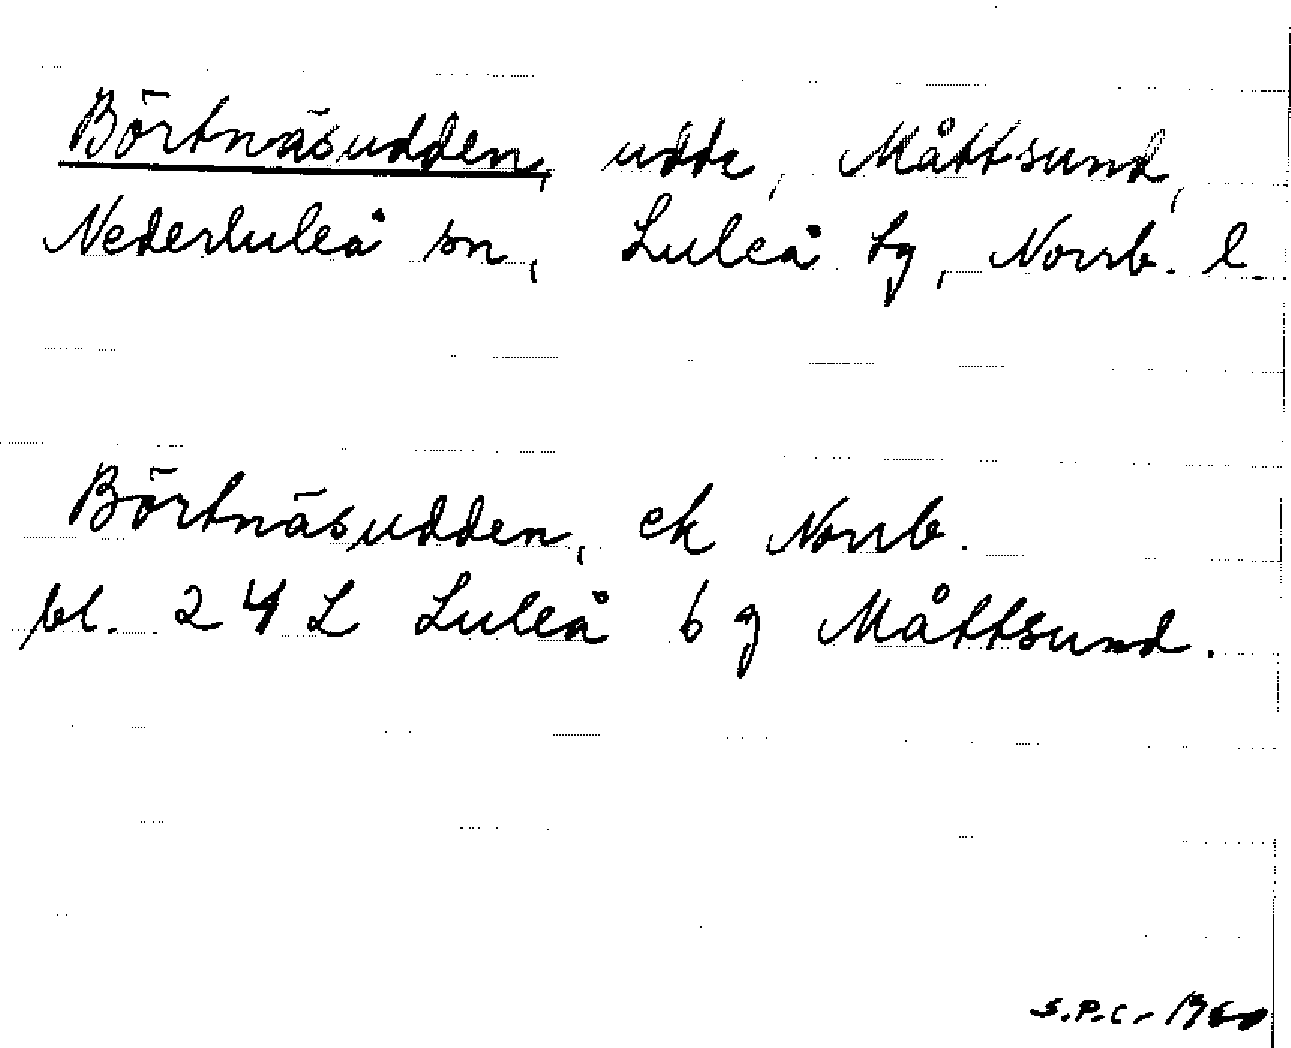 Börtnäsudden, udde, Måttsund,
Nederluleå sn, Luleå tg, Norrb. l.
Börtnäsudden, ek Norrb.
bl. 24 L Luleå 6 g Måttsund.
S.P.C. 1960